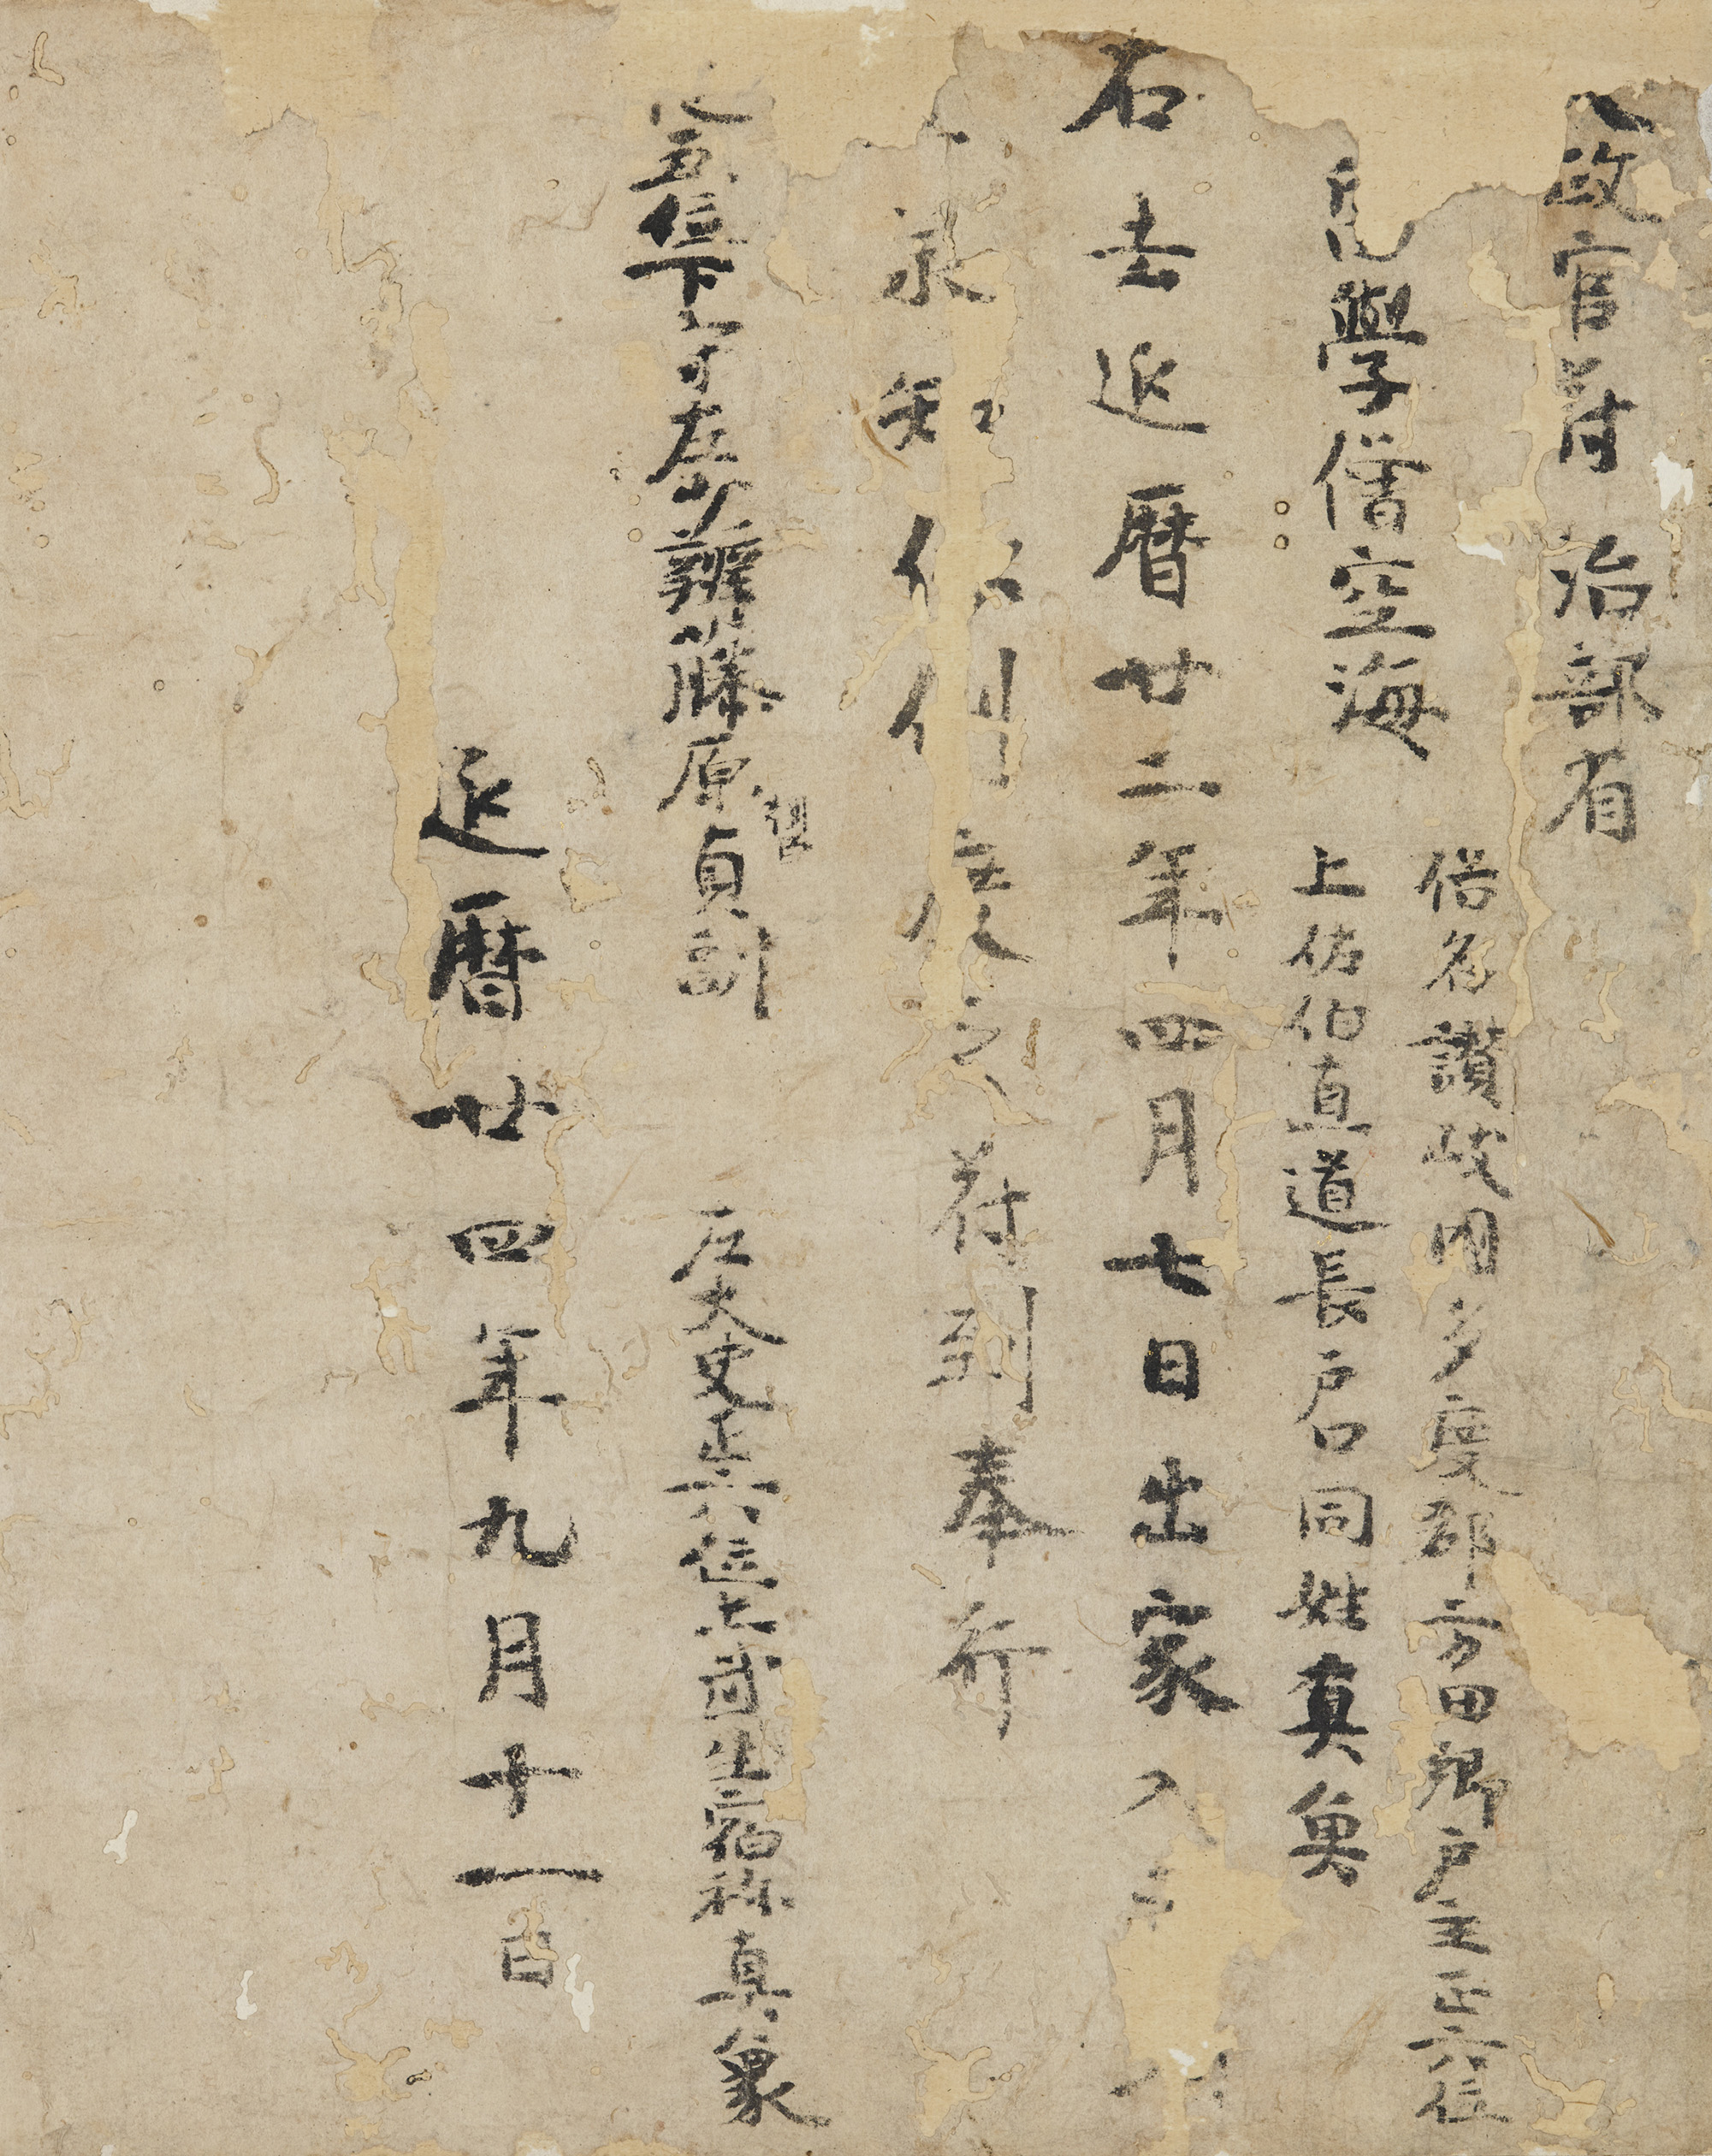 政官符 治部省
學僧空海
俗名讃岐国多度郡方田郷戸主正六位
上佐伯直道長戸口同姓真魚
右去延暦廿二年四月七日出家入
承知依例度之符到奉行
五位下守左少辨藤原貞副
左大史正六位上武生宿祢真象
延暦廿四年九月十一日